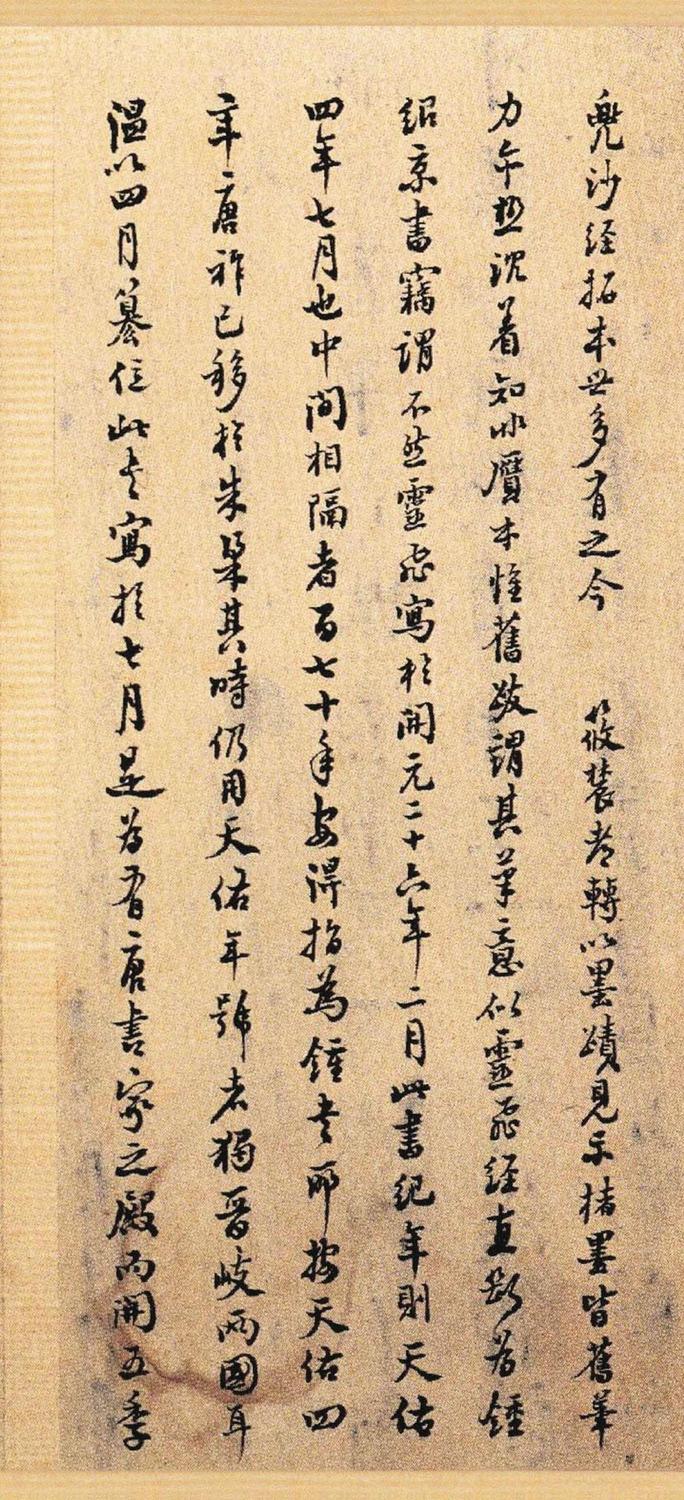 兜沙经拓本世多有之今 筱装老转以墨蹟見示楮墨皆舊筆
力午䢖沉着知非贗本惟舊跋謂其筆意似靈飛經直斷為鍾
紹京書竊謂不然靈飛寫於開元二十六年二月此書紀年則天佑
四年七月也中間相隔者百七十年安得指為鍾书耶按天佑四
年唐祚已移於朱梁其時仍用天佑年號者獨晉岐兩國耳
溫以四月簒位此书寫於七月是為有唐書家之殿而開五季